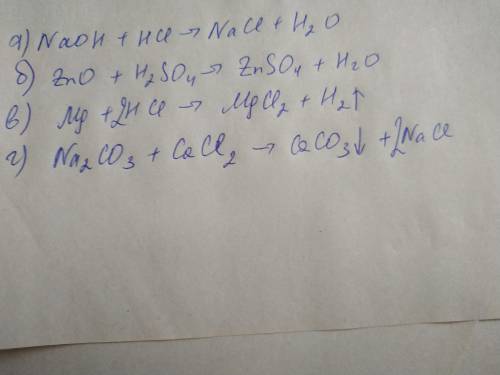 а) NaOH + HCl → NaCl + H2O
б) ZnO + H2SO4 → ZnSO4 + H2O
в) Mg + 2HCl → MgCl2 + H2↑
г) Na2CO3 + CaCl2 → CaCO3↓ + 2NaCl